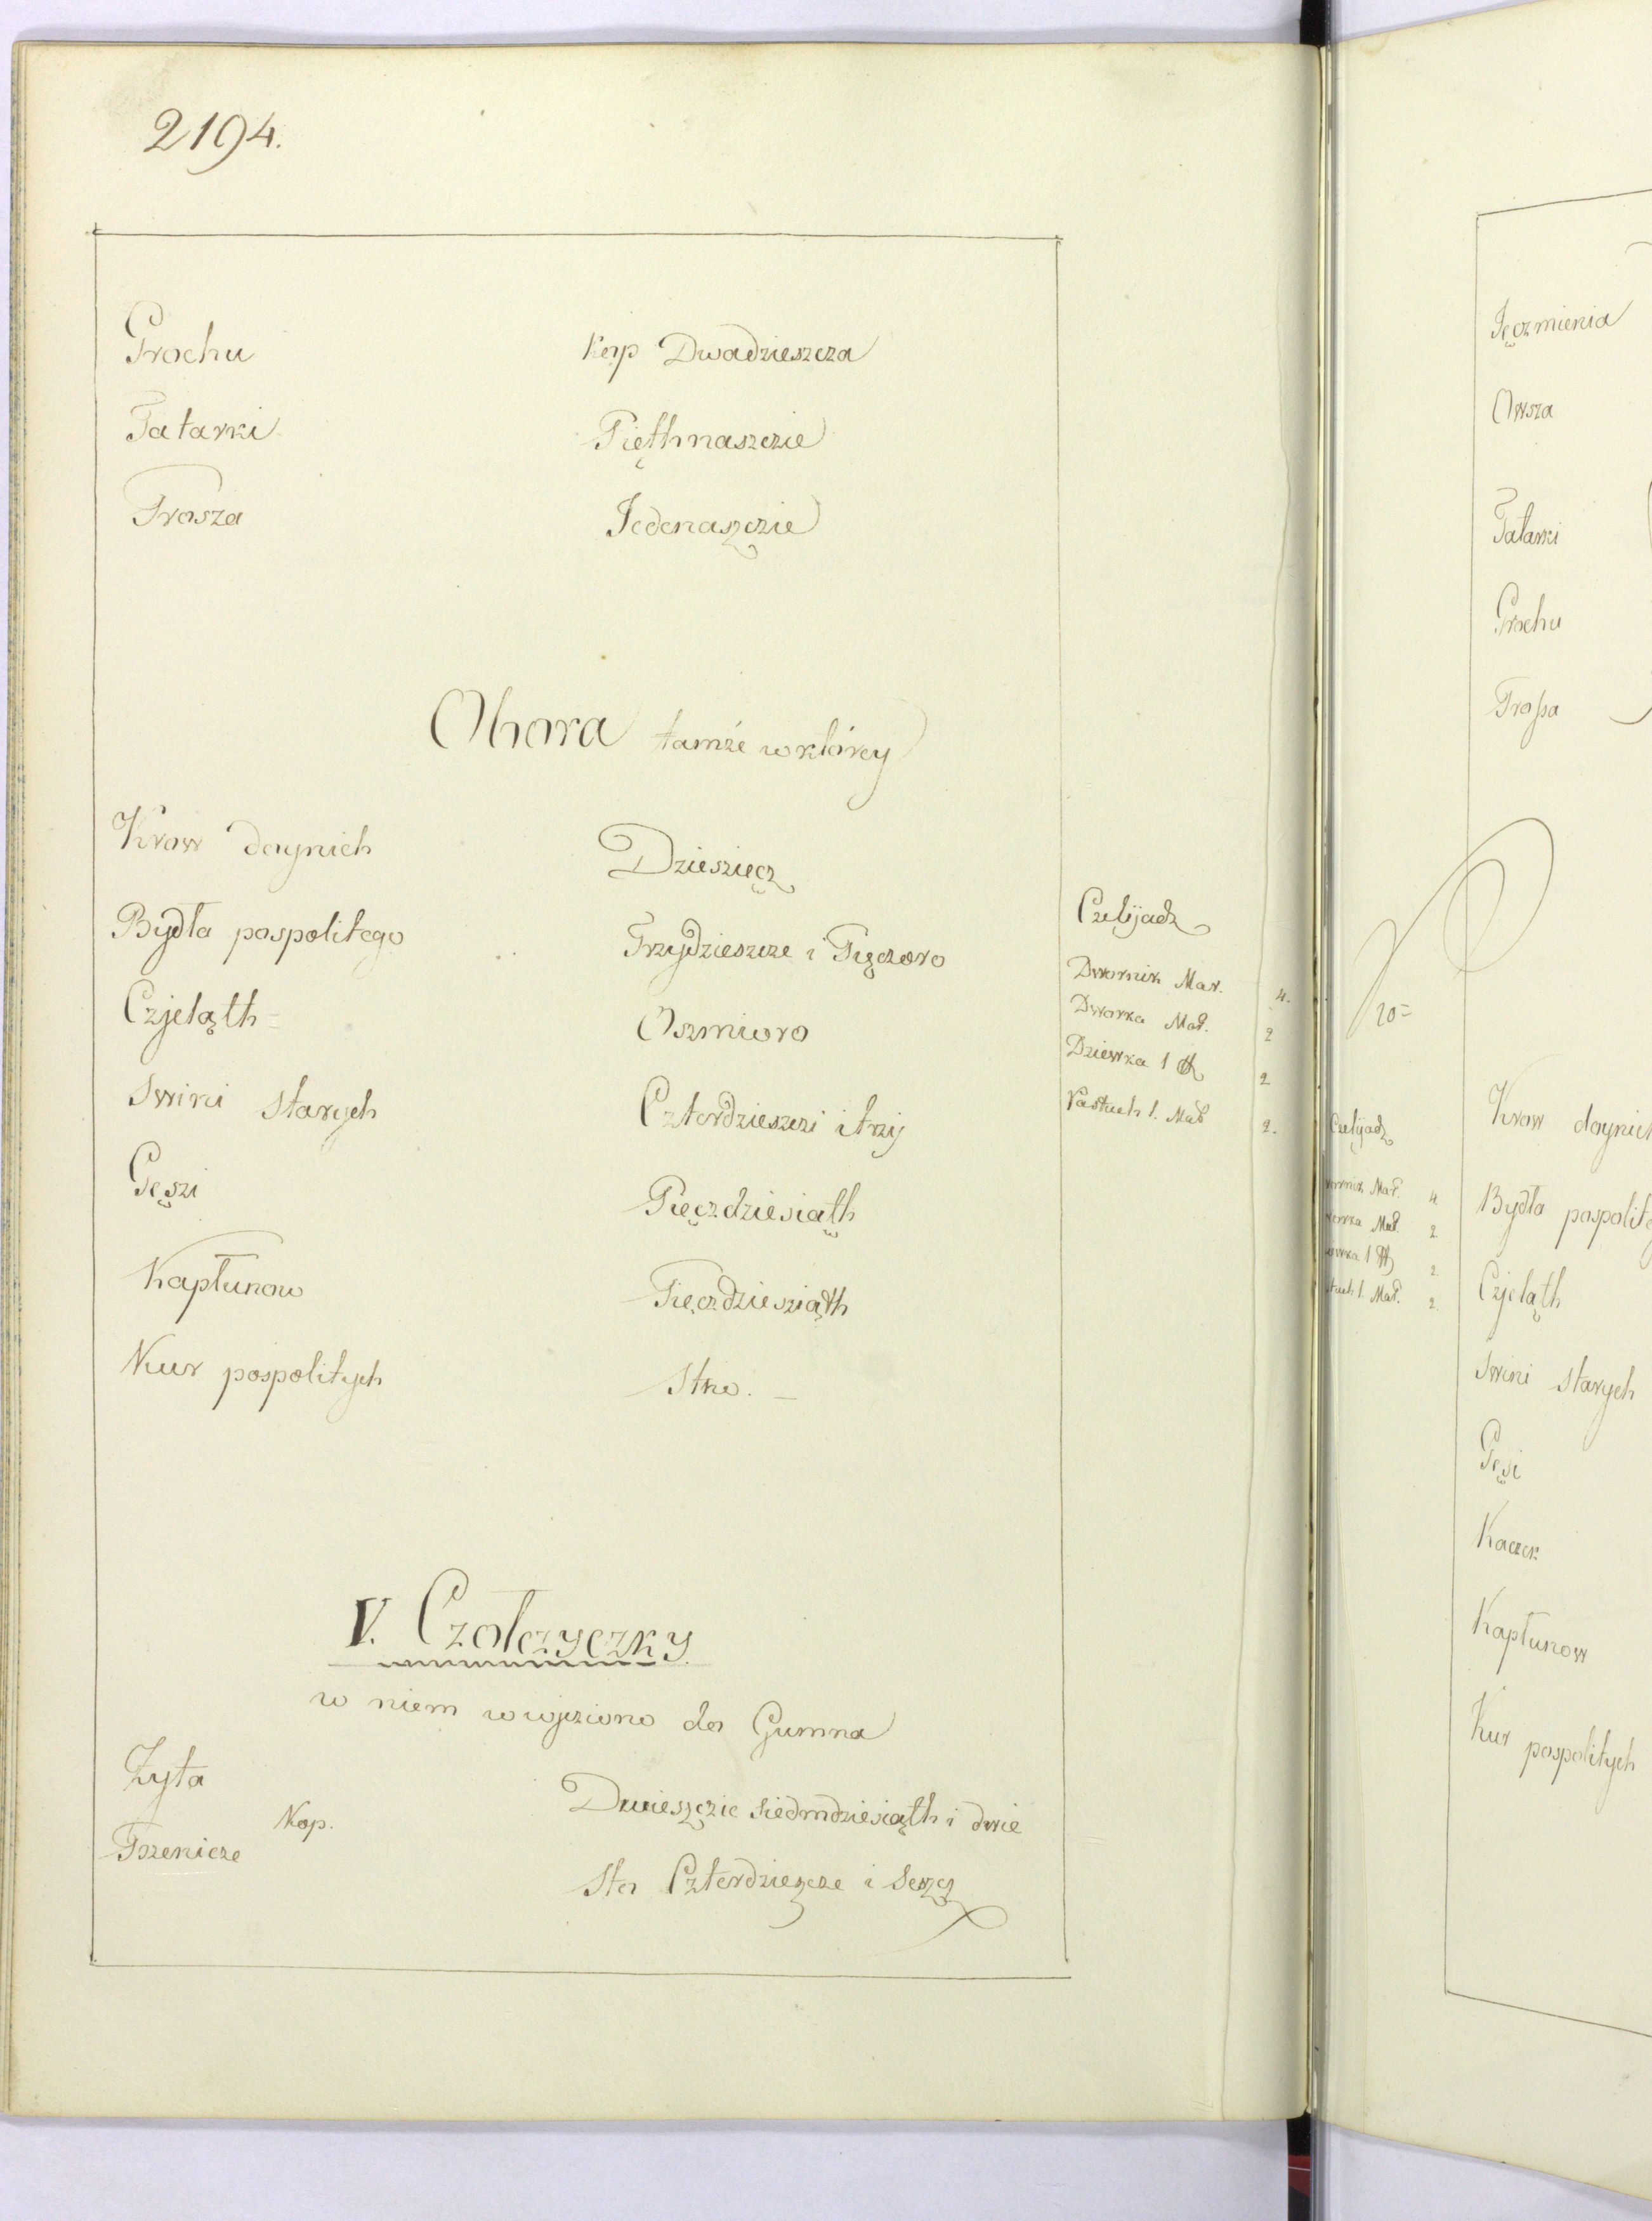 2194.
Grochu Kop Dwadzieszcza
Tatarki Pięthnaszczie
Prosza Jedenaszczie
Obora tamże w ktorey
Krow doynich Dziesziecz
Bydła pospolitego Trzydzieszcze i Pięczoro
Czieląth Oszmioro
Swini starych Czterdzieszczi i trzy
Gęszi Pięczdziesiąth
Kapłunow Pięczdziesziąth
Kur pospolitych Stho. —
Czelijadz
Dwornik Mał. 4.
Dworka Mał. 2
Dziewka 1 2
Pastuch 1. Mał 2.
V. Czołczyczky.
w niem wwjeziono do Gumna
Żyta Dwieszczie Siedmdziesiąth i dwie
Kop.
Pszenicze Sto Czterdziescze i Seszcz
Jęczmienia
Owsza
Tatarki
Grochu
Proßa
20=
Krow doynich
Czelijadz
Mał. 4
Mał. 2
1 2
1. Mał. 2.
Bydła pospolite
Czieląth
Swini starych
Gęsi
Kaczek
Kapłunow
Kur pospolitych